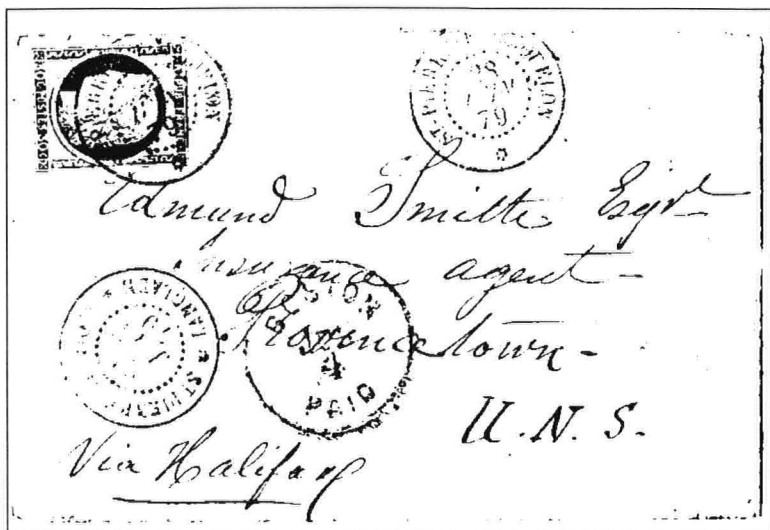 ST-PIERRE QUELON
28
79
Edmund Smith Esqr
Insurance agent-
Provincetown-
U.N.S.
Via Halifax
BOSTON
4
PAID
ST PIERRE